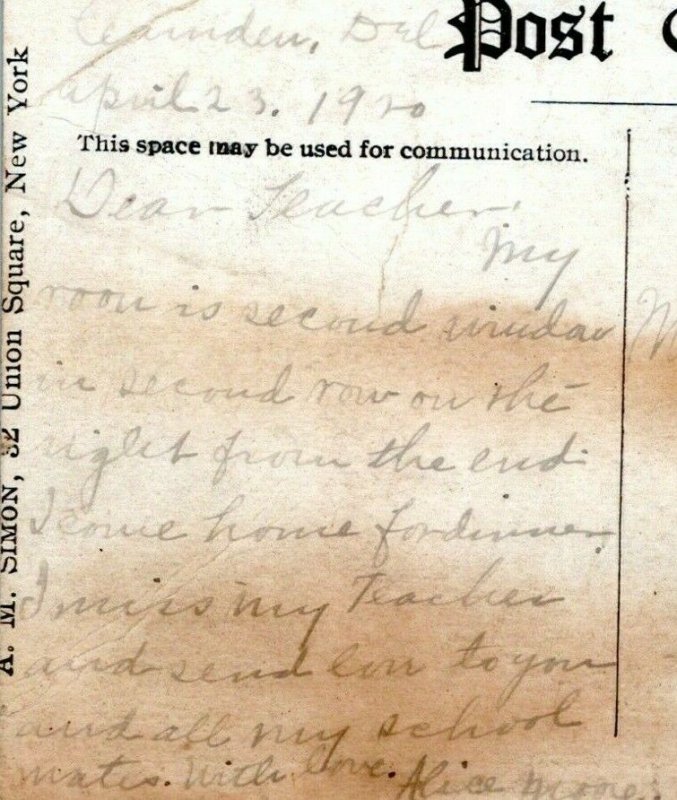 Camden, Del
April 23. 1920
Post
This space may be used for communication.
Dear Teacher.
My
room is second window
in second row on the
right from the end
I come home for dinner
I miss my Teacher
and send lov to you
and all my school
mates. With Love. Alice Moore.
A. M. SIMON, 32 Union Square, New York